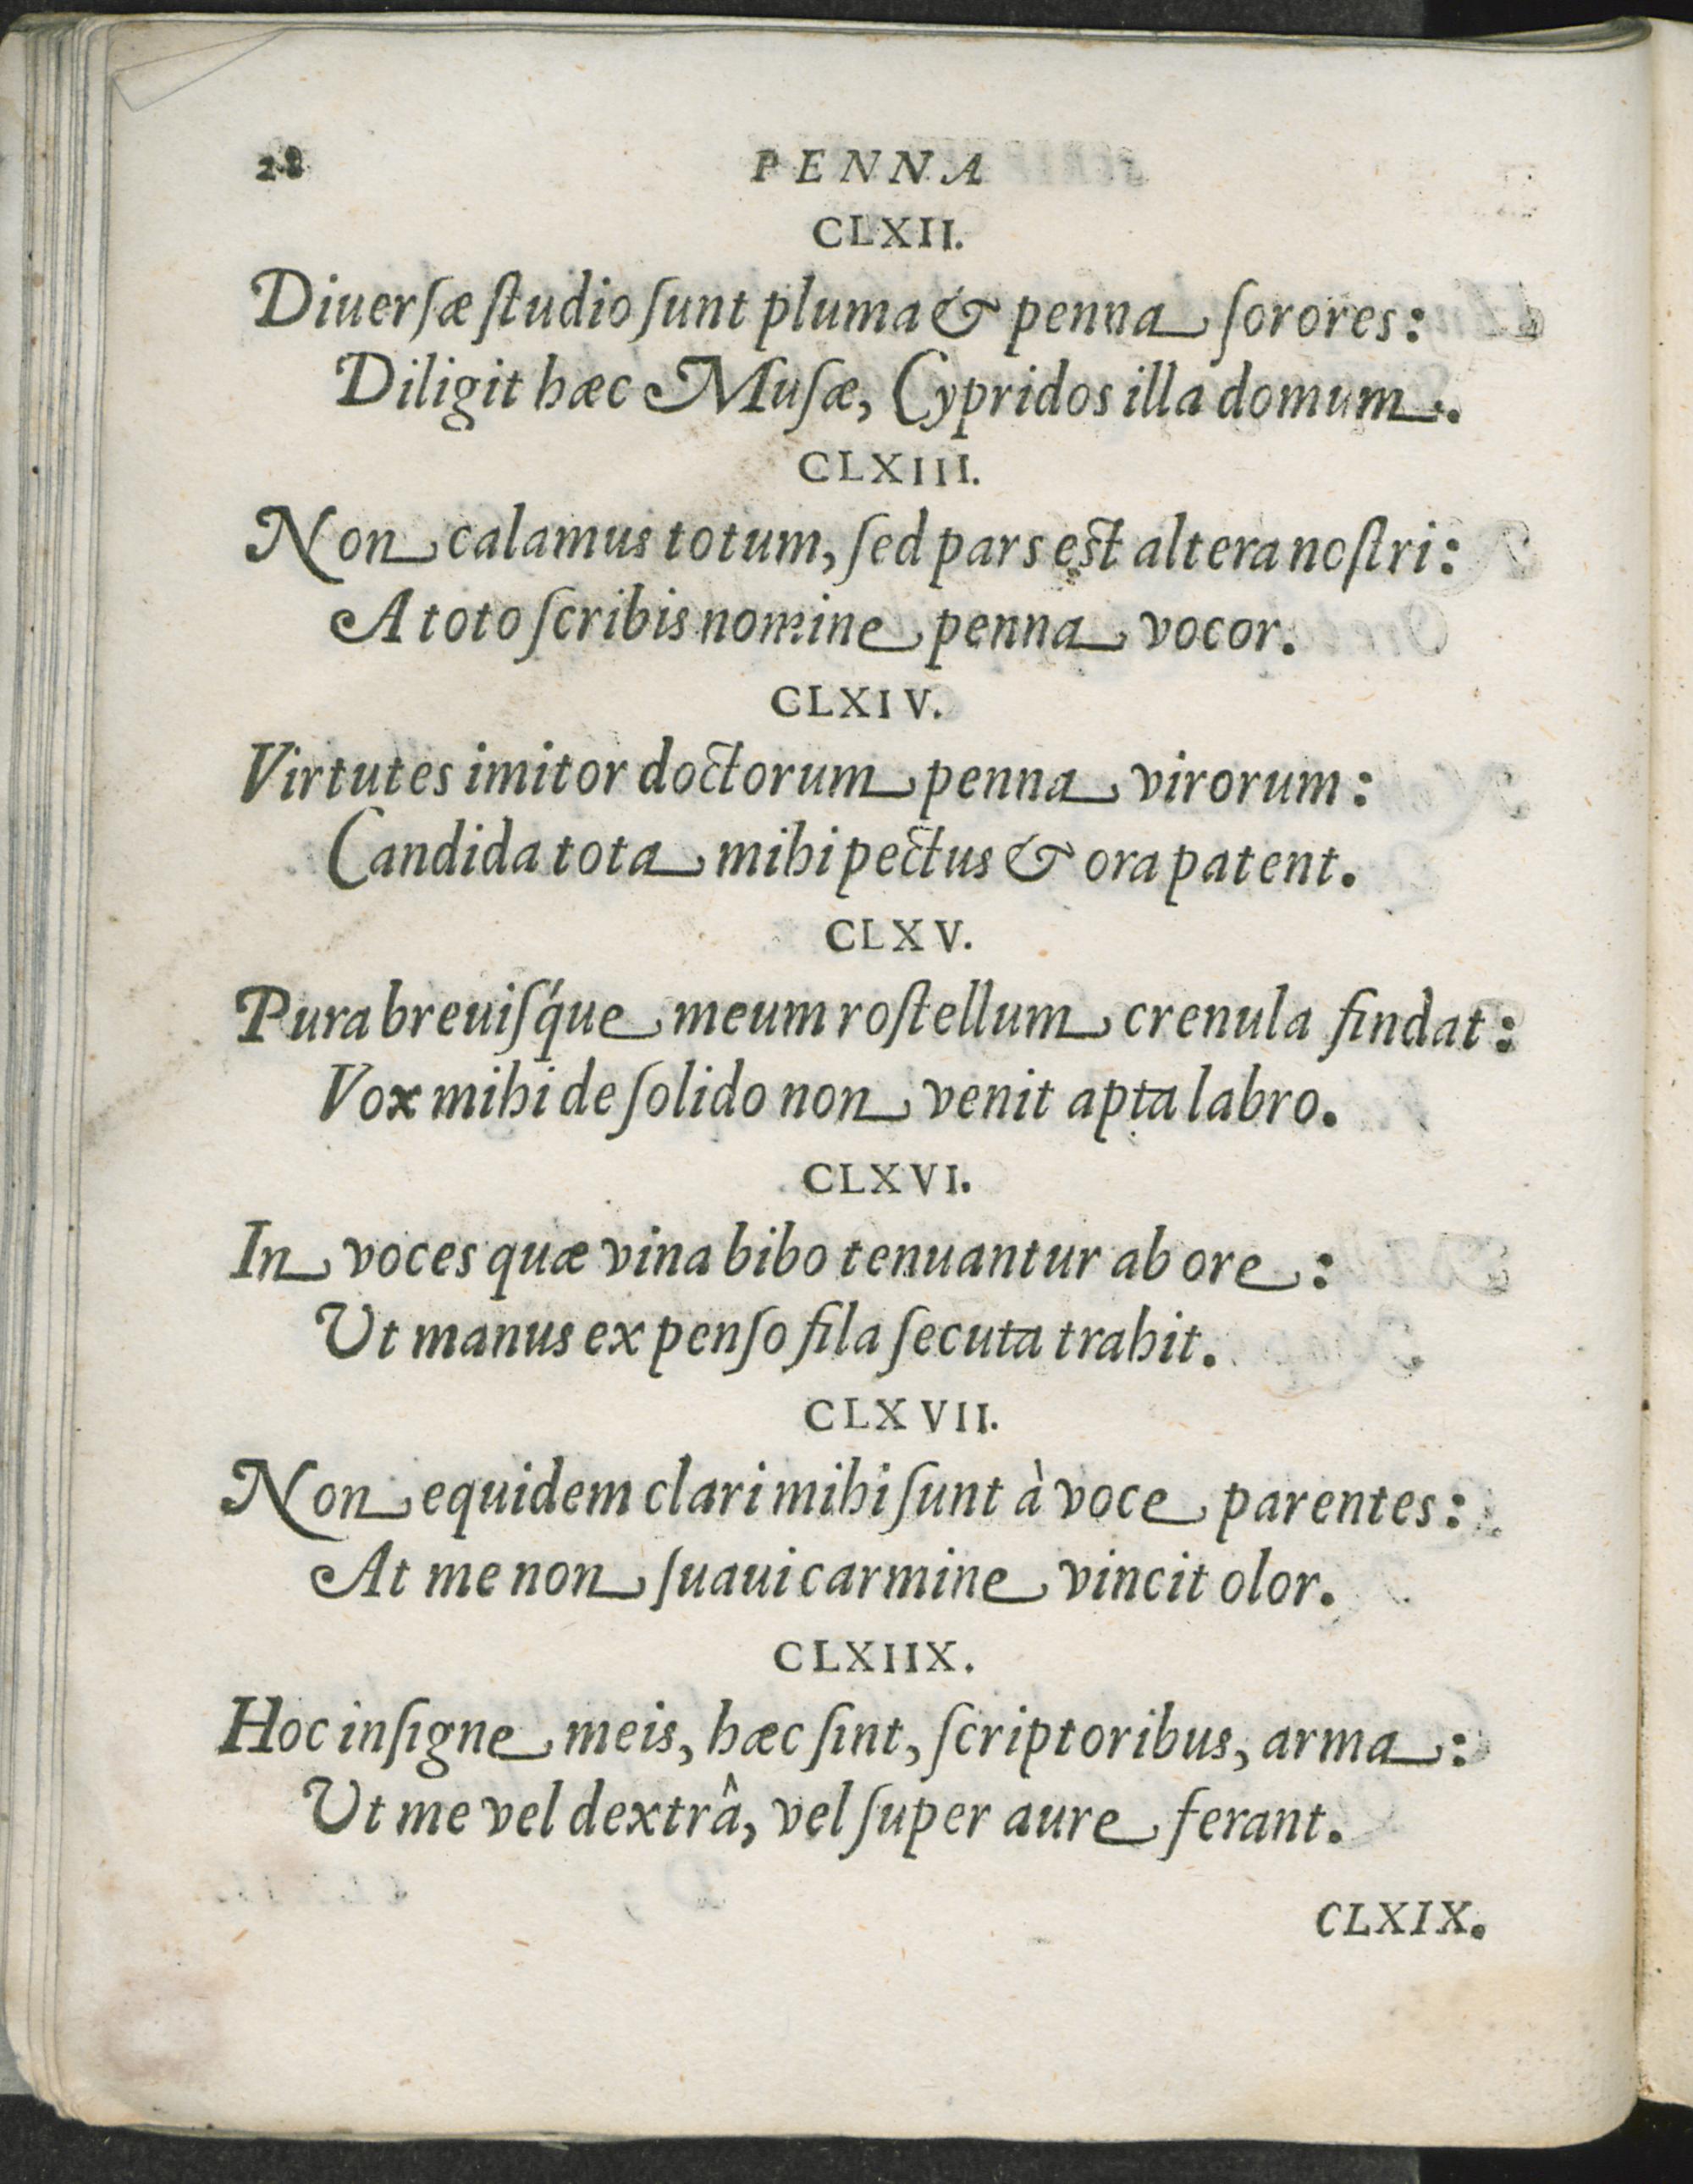 28 PENNA
CLXII.
Diuerſæ ſtudio ſunt pluma & penna ſorores:
Diligit hæc Muſæ, Cypridos illa domum.
CLXIII.
Non calamus totum, ſed pars est altera noſtri:
A toto ſcribis nomine penna vocor.
CLXIV.
Virtutes imitor doctorum penna virorum:
Candida tota mihi pectus & ora patent.
CLXV.
Pura breuiſq́ue meum roſtellum crenula findat:
Vox mihi de ſolido non venit apta labro.
CLXVI.
In voces quæ vina bibo tenuantur ab ore:
Ut manus ex penſo fila ſecuta trahit.
CLXVII.
Non equidem clari mihi ſunt à voce parentes:
At me non ſuaui carmine vincit olor.
CLXIIX.
Hoc inſigne meis, hæc ſint, ſcriptoribus, arma:
Ut me vel dextrâ, vel ſuper aure ferant.
CLXIX.